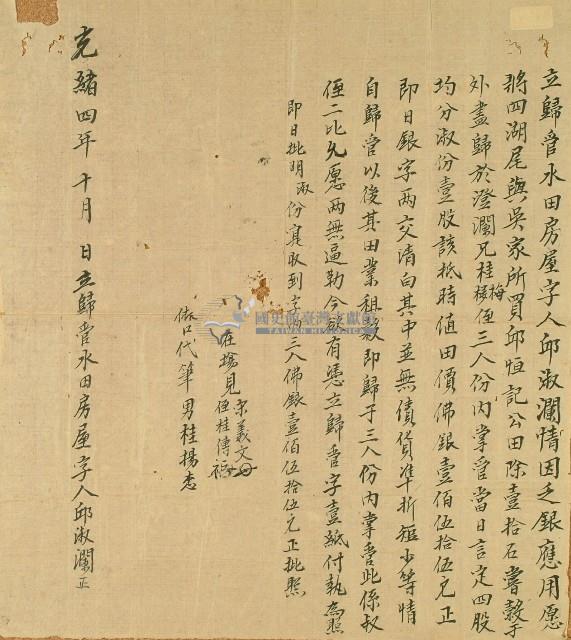 立歸管水田房屋字人邱淑瀾情因乏銀應用愿
將四湖尾與吳家所買邱恒記公田除壹拾石嘗穀
外盡歸於澄瀾兄桂梅桂侄三人份內掌管當日言定四股
均分淑份壹股該抵時值田價佛銀壹佰伍拾伍元正
即日銀字兩交清白其中並無債貨準折短少等情
自歸管以後其田業租穀即歸于三人份內掌管此係叔
侄二比允愿兩無逼勒今欲有憑立歸管字壹紙付執為照
即日批明淑份實收到字內三人佛銀壹佰伍拾伍元正批照
在場見 宗義文
伍桂傳
依口代筆男桂揚
光緒四年十月 日立歸管水田房屋字人邱淑瀾
國史館臺灣文獻館
TAIWAN HISTORICA